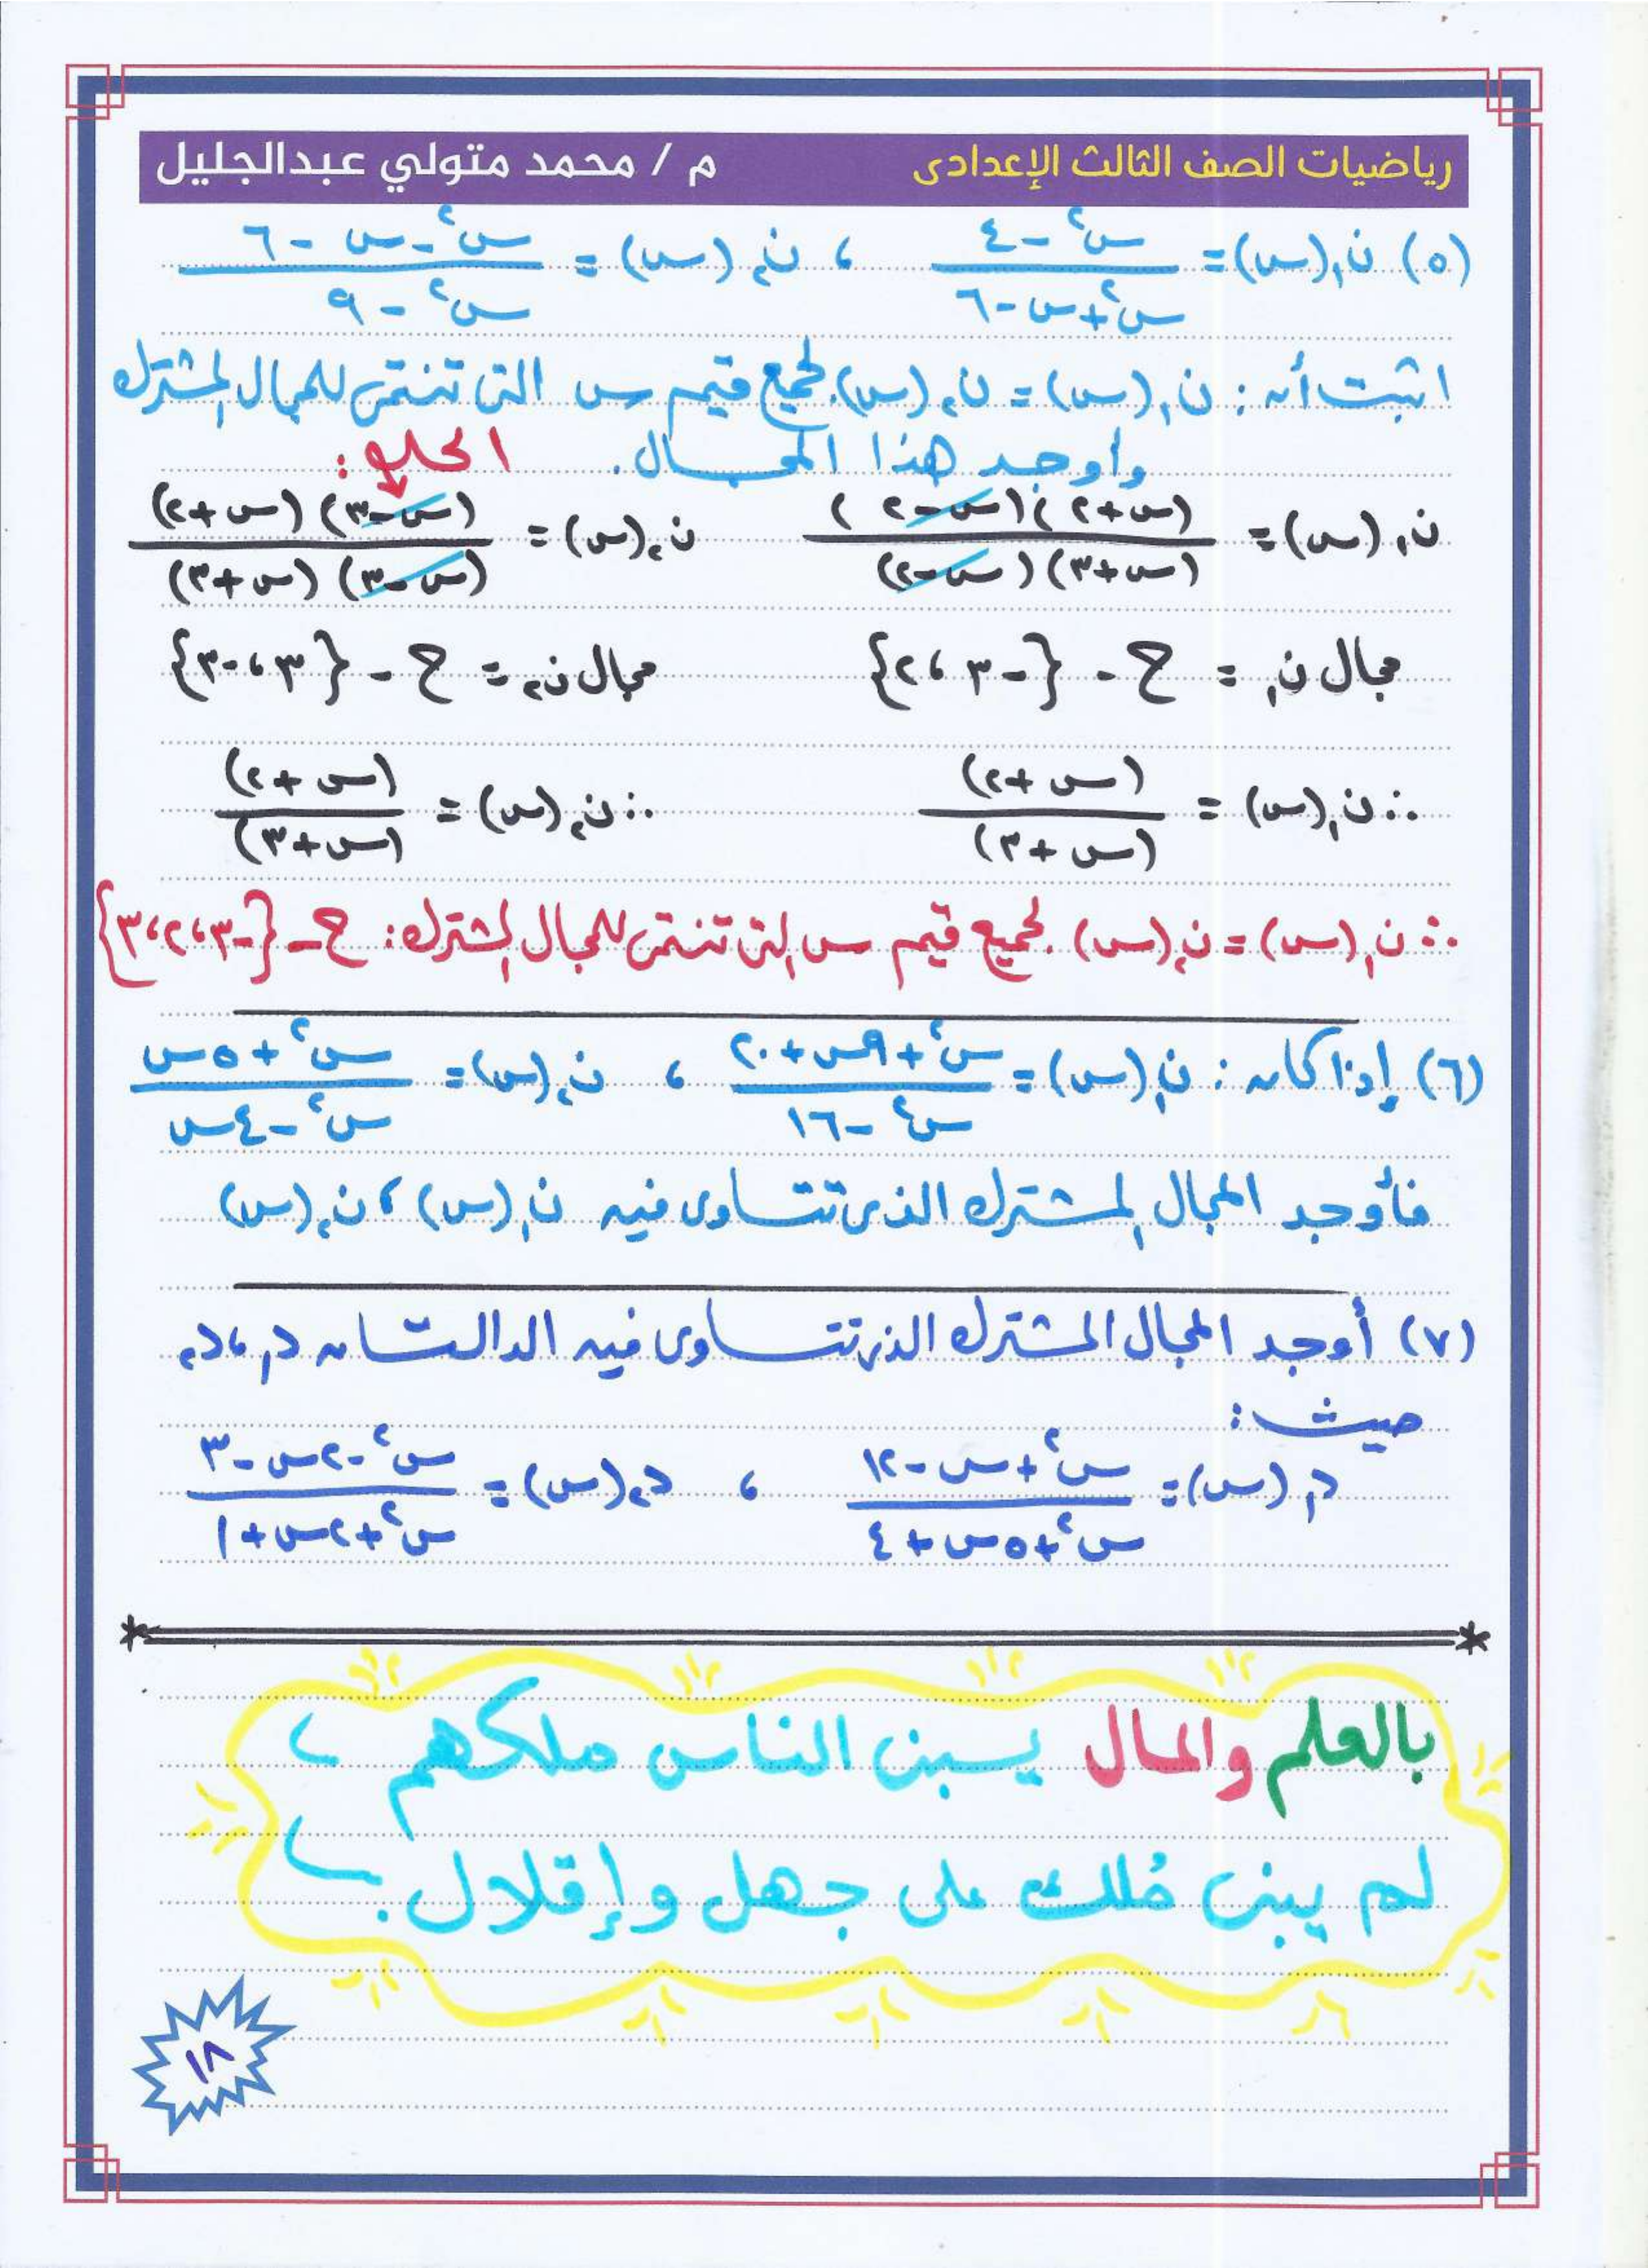 رياضيات الصف الثالث الإعدادى م / محمد متولي عبدالجليل
(٥) ن₁(س) = (س² - ٤) / (س² + س - ٦) ، ن₂(س) = (س² - س - ٦) / (س² - ٩)
اثبت أن : ن₁(س) = ن₂(س) لجميع قيم س التى تنتمى للمجال المشترك
وأوجد هذا المجال. الحل :
ن₁(س) = (س + ٢)(س - ٢) / (س + ٣)(س - ٢) ن₂(س) = (س - ٣)(س + ٢) / (س - ٣)(س + ٣)
مجال ن₁ = ح - {-٣ ، ٢} مجال ن₂ = ح - {٣ ، -٣}
∴ ن₁(س) = (س + ٢) / (س + ٣) ∴ ن₂(س) = (س + ٢) / (س + ٣)
∴ ن₁(س) = ن₂(س) لجميع قيم س التى تنتمى للمجال المشترك : ح - {-٣ ، ٢ ، ٣}
(٦) إذا كان : ن₁(س) = (س² + ٩س + ٢٠) / (س² - ١٦) ، ن₂(س) = (س² + ٥س) / (س² - ٤س)
فأوجد المجال المشترك الذى تتساوى فيه ن₁(س) ، ن₂(س)
(٧) أوجد المجال المشترك الذى تتساوى فيه الدالتان د₁ ، د₂
حيث :
د₁(س) = (س² + س - ١٢) / (س² + ٥س + ٤) ، د₂(س) = (س² - ٢س - ٣) / (س² + ٢س + ١)
بالعلم والمال يبنى الناس ملكهم
لم يبنى مُلك على جهل وإقلال .
١٨